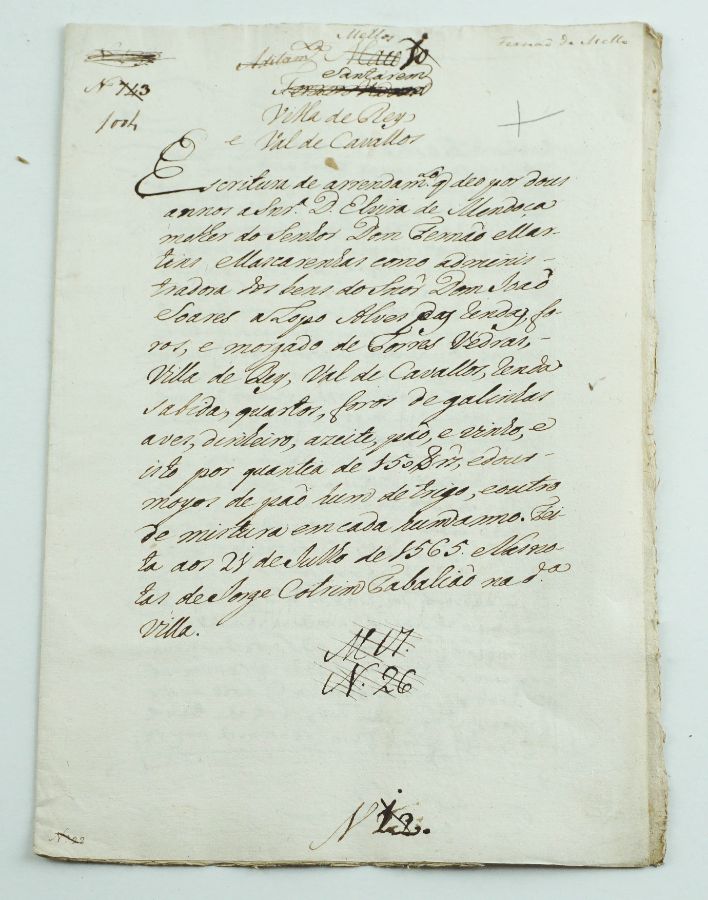 Mellos
Fernão de Mello
Maço
Santarem
N 743
1004
Villa de Rey,
e Val de Cavallos
Escritura de arrendam.to q deo por dous
annos a Snr.a D. Elvira de Mendoça
molher do Senhor Dom Fernão Mar-
tins Mascarenhas como adminis-
tradora dos bens do Snor Dom Joaõ
Soares a Lopo Alves das rendas, fo-
ros, e morgado de Torres Vedras,
Villa de Rey, Val de Cavallos, renda
sabida, quartos, foros de galinhas
aves, dinheiro, azeite, pão, e vinho, e
isto por quantia de 150 rs, e dous
moyos de paõ hum de trigo, e outro
de mistura em cada hum anno. Fei-
ta aos 21 de Julho de 1565. e Nas no-
tas de Jorge Cotrim Tabaliaõ na d.a
Villa.
M 17.
N. 26
N 12.